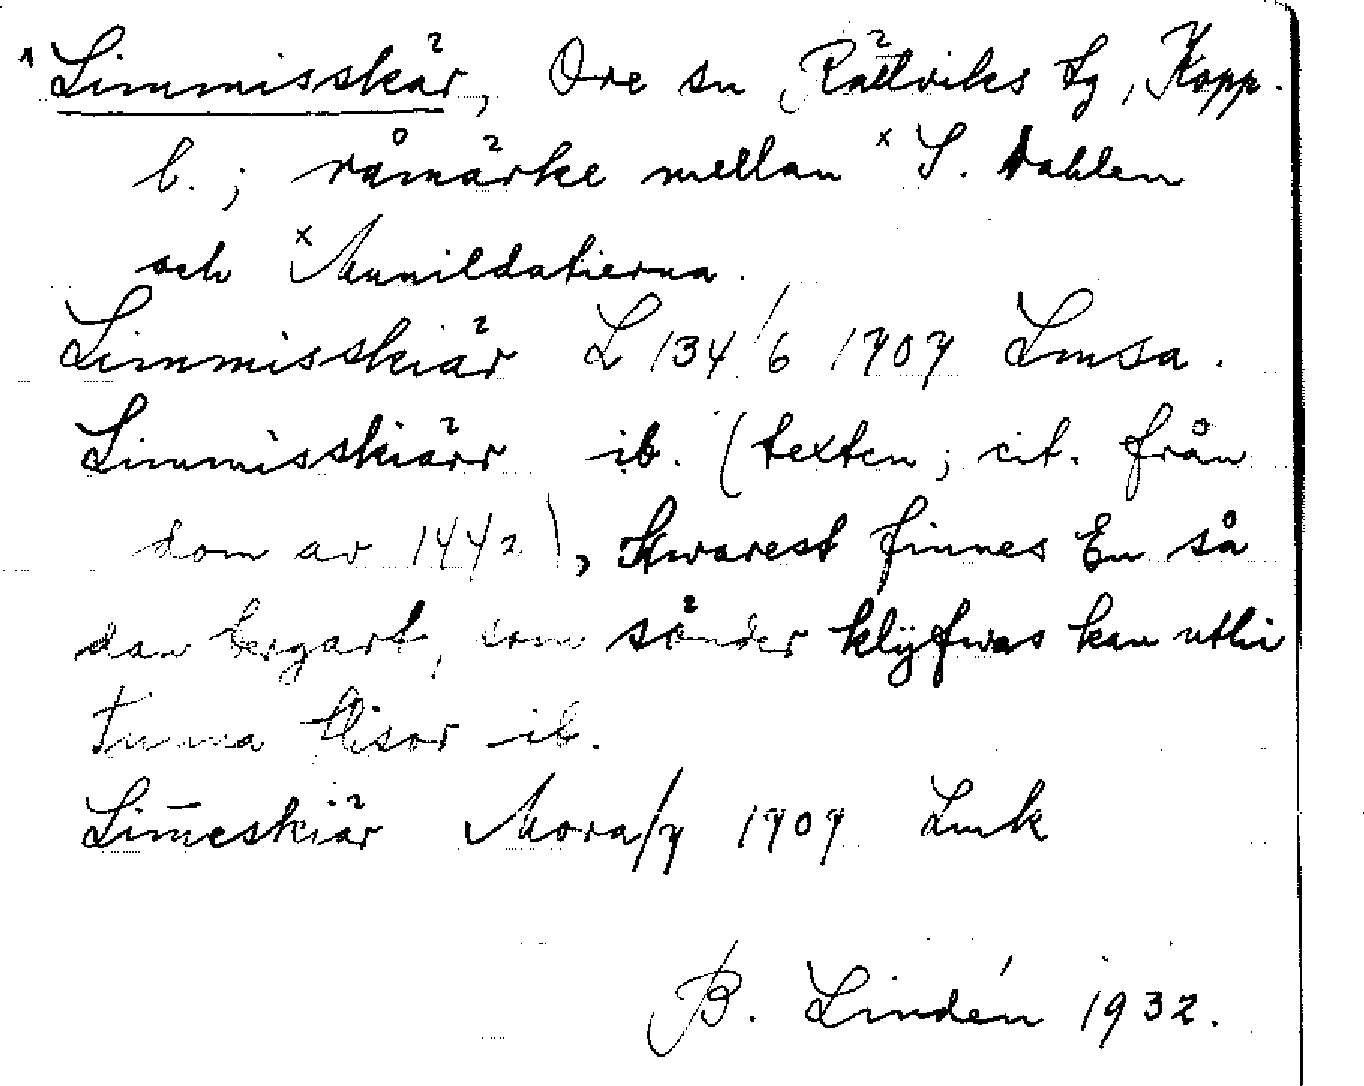 Limmisskär, Ore sn Rättviks tg, Kopp.
l.; råmärke mellan x S. Dahlen
och x Munildatierna.
Limmisskiär L 134/6 1707 Lmsa.
Limmisskiärr ib. (texten; cit. från
dom av 1442), Hwarest finnes En så
dan bergart, som sönder klyfwas kan uthi
tunna skisor ib.
Lim̅eskiär Mora/7 1707 Lmk
B. Lindén 1932.